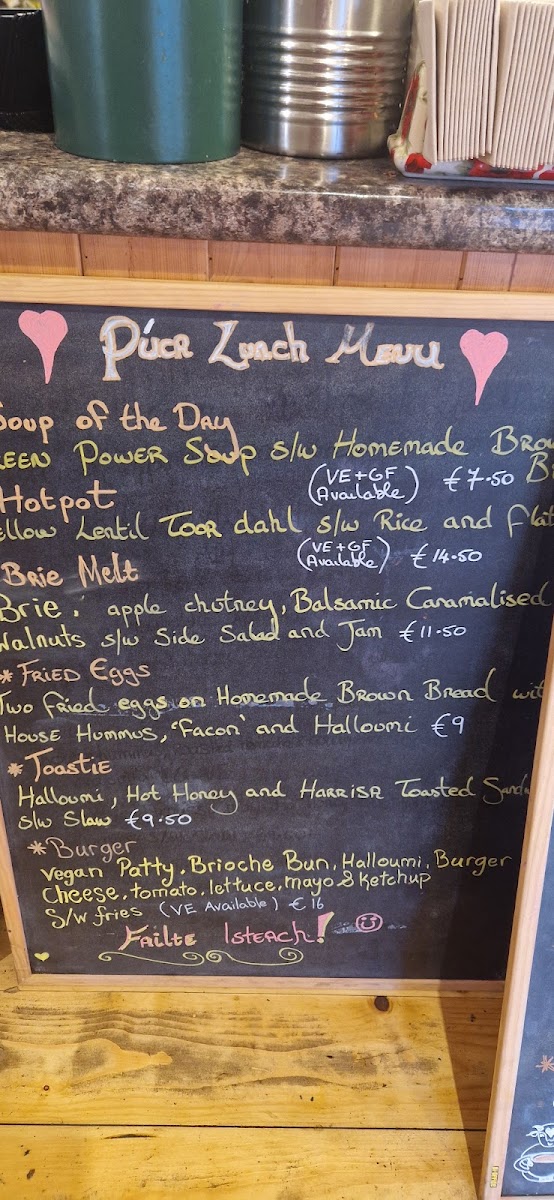 Púca Lunch Menu
Soup of the Day
Green Power Soup s/w Homemade Brow
(VE + GF Available) €7.50 B
Hotpot
ellow Lentil Toor dahl s/w Rice and flat
(VE + GF Available) €14.50
Brie Melt
Brie, apple chutney, Balsamic Caramalised
Walnuts s/w Side Salad and Jam €11.50
* Fried Eggs
Two fried eggs on Homemade Brown Bread wit
House Hummus, 'Facon' and Halloumi €9
* Toastie
Halloumi, Hot Honey and Harrisa Toasted Sand
s/w Slaw €9.50
* Burger
Vegan Patty, Brioche Bun, Halloumi, Burger
Cheese, tomato, lettuce, mayo & ketchup
S/w fries (VE Available) €16
Failte Isteach!